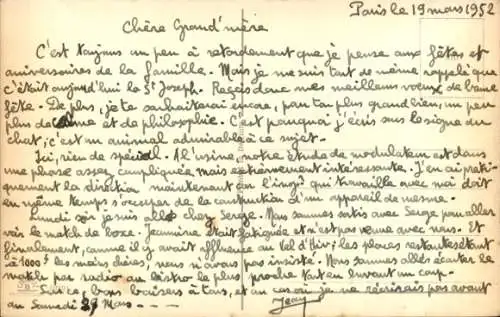 Paris le 19 mars 1952
Chère Grand'mère
C'est toujours un peu à retardement que je pense aux fêtes et
anniversaires de la famille. Mais je me suis tout de même rappelé que
c'était aujourd'hui la St Joseph. Reçois donc mes meilleurs voeux de bonne
fête. De plus, je te souhaiterai encore, pour ton plus grand bien, un peu
plus de calme et de philosophie. C'est pourquoi j'écris sous le signe du
chat, c'est un animal admirable à ce sujet.
Ici, rien de spécial. A l'usine, notre étude de modulateur est dans
une phase assez compliquée mais extrêmement intéressante. J'en ai prati-
quement la direction maintenant car l'ingr qui travaille avec moi doit
en même temps s'occuper de la construction d'un appareil de mesure.
Lundi soir je suis allé chez Serge. Nous sommes sortis avec Serge pour aller
voir le match de boxe. Jeannine était fatiguée et n'est pas venue avec nous. Et
finalement, comme il y avait affluence au Vel d'Hiv; les places restantes étant
à 1000f les moins chères, nous n'avons pas insisté. Nous sommes allés écouter le
match par radio au bistro le plus proche tout en buvant un coup.
Sur ce, bons baisers à tous, et au cas où je ne récrirais pas avant
au Samedi 29 Mars - - - -
Jean